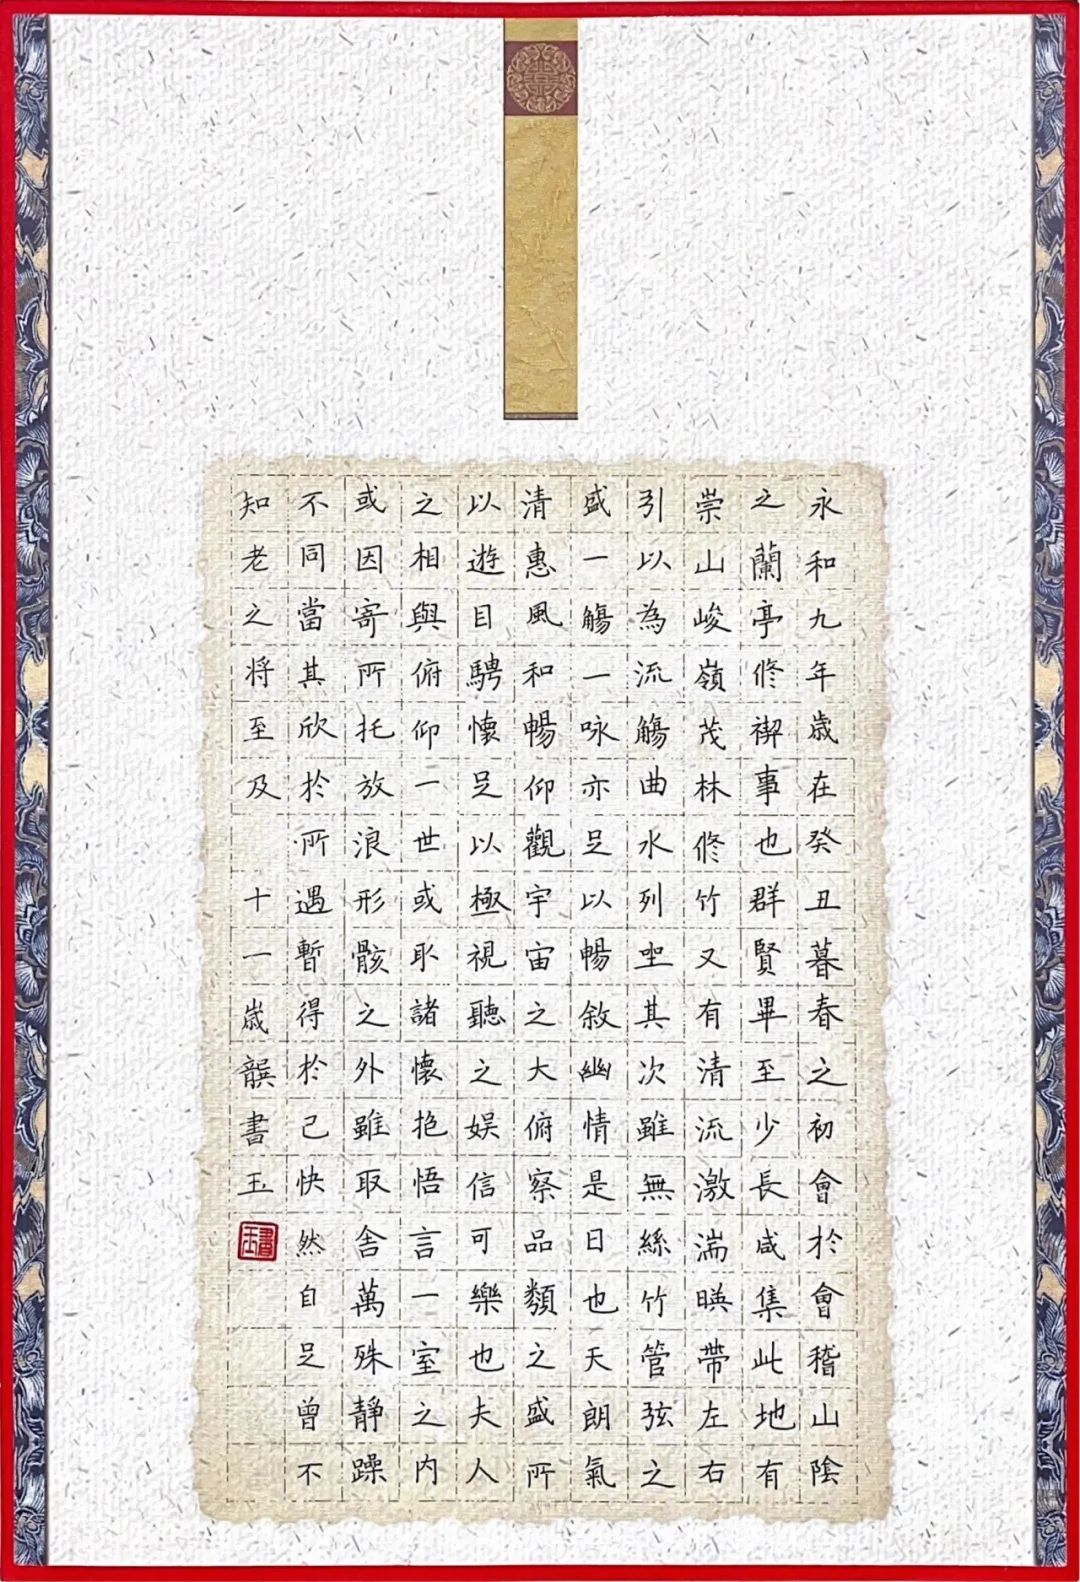 永和九年歲在癸丑暮春之初會於會稽山陰
之蘭亭修禊事也群賢畢至少長咸集此地有
崇山峻嶺茂林修竹又有清流激湍暎帶左右
引以為流觴曲水列坐其次雖無絲竹管弦之
盛一觴一咏亦足以暢敘幽情是日也天朗氣
清惠風和暢仰觀宇宙之大俯察品類之盛所
以遊目騁懷足以極視聽之娛信可樂也夫人
之相與俯仰一世或取諸懷抱悟言一室之内
或因寄所托放浪形骸之外雖取舍萬殊靜躁
不同當其欣於所遇暫得於己快然自足曾不
知老之将至及 十一歲龔書玉
書玉